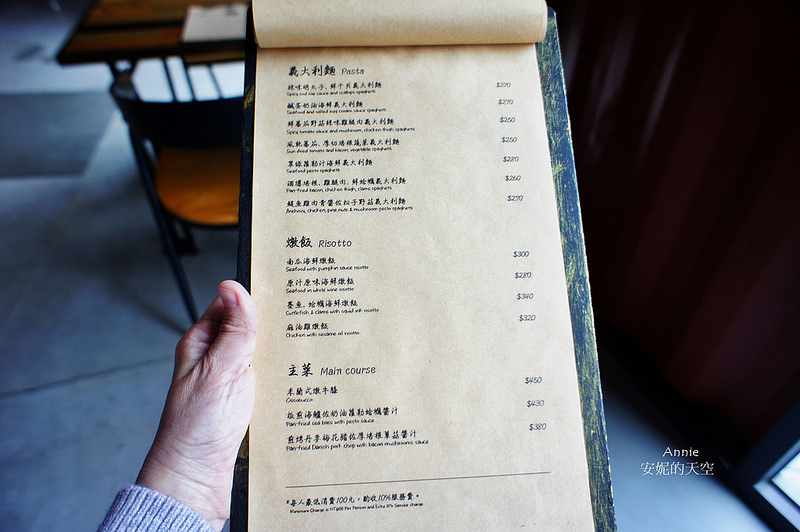 義大利麵 Pasta
辣味明太子, 鮮干貝義大利麵 $270
Spicy cod roe sauce and scallops spaghetti
鹹蛋奶油海鮮義大利麵 $270
Seafood and salted egg cream sauce spaghetti
鮮番茄野菇辣味雞腿肉義大利麵 $250
Spicy tomato sauce and mushroom, chicken thigh spaghetti
風乾番茄, 厚切培根蔬菜義大利麵 $250
Sun dried tomato and bacon, vegetable spaghetti
翠綠蘿勒汁海鮮義大利麵 $280
Seafood pesto spaghetti
培根, 雞腿肉, 鮮蛤蠣義大利麵 $260
Pan-fried bacon, chicken thigh, clams spaghetti
鯷魚雞肉青醬佐松子野菇義大利麵 $270
Anchovy, chicken, pine nuts & mushroom pesto spaghetti
燉飯 Risotto
南瓜海鮮燉飯 $300
Seafood with pumpkin sauce risotto
原汁原味海鮮燉飯 $280
Seafood in white wine risotto
墨魚, 蛤蠣海鮮燉飯 $340
Cuttlefish & clams with squid ink risotto
麻油雞燉飯 $320
Chicken with sesame oil risotto
主菜 Main course
米蘭式燉牛膝 $450
Ossobucco
板煎海鱸佐奶油蘿勒蛤蠣醬汁 $430
Pan-fried sea bass with pesto sauce
煎烤丹麥梅花豬佐厚培根蕈菇醬汁 $380
Pan-fried Danish pork chop with bacon mushrooms sauce
*每人最低消費100元, 酌收10%服務費。
Minimum Charge is NT$100 Per Person and Extra 10% Service charge.
Annie
安妮的天空